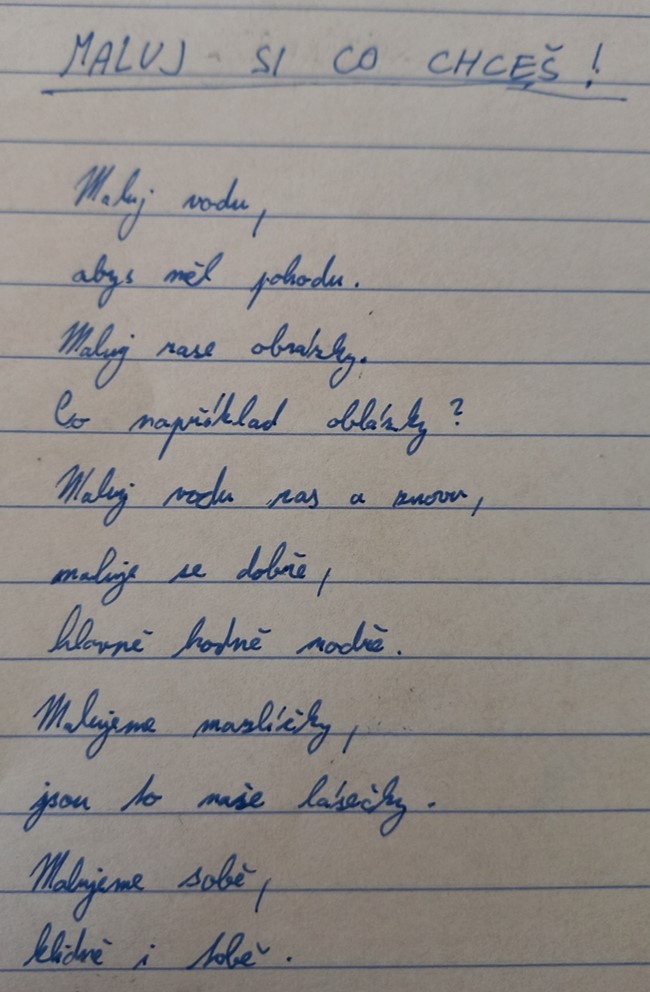 MALUJ SI CO CHCEŠ!
Maluj vodu,
abys měl pohodu.
Maluj rase obrázky.
Co například oblázky?
Maluj vodu ras a znovu,
maluje se dobře,
hlavně hodně modře.
Malujeme mazlíčky,
jsou to naše lásečky.
Malujeme sobě,
klidně i tobě.